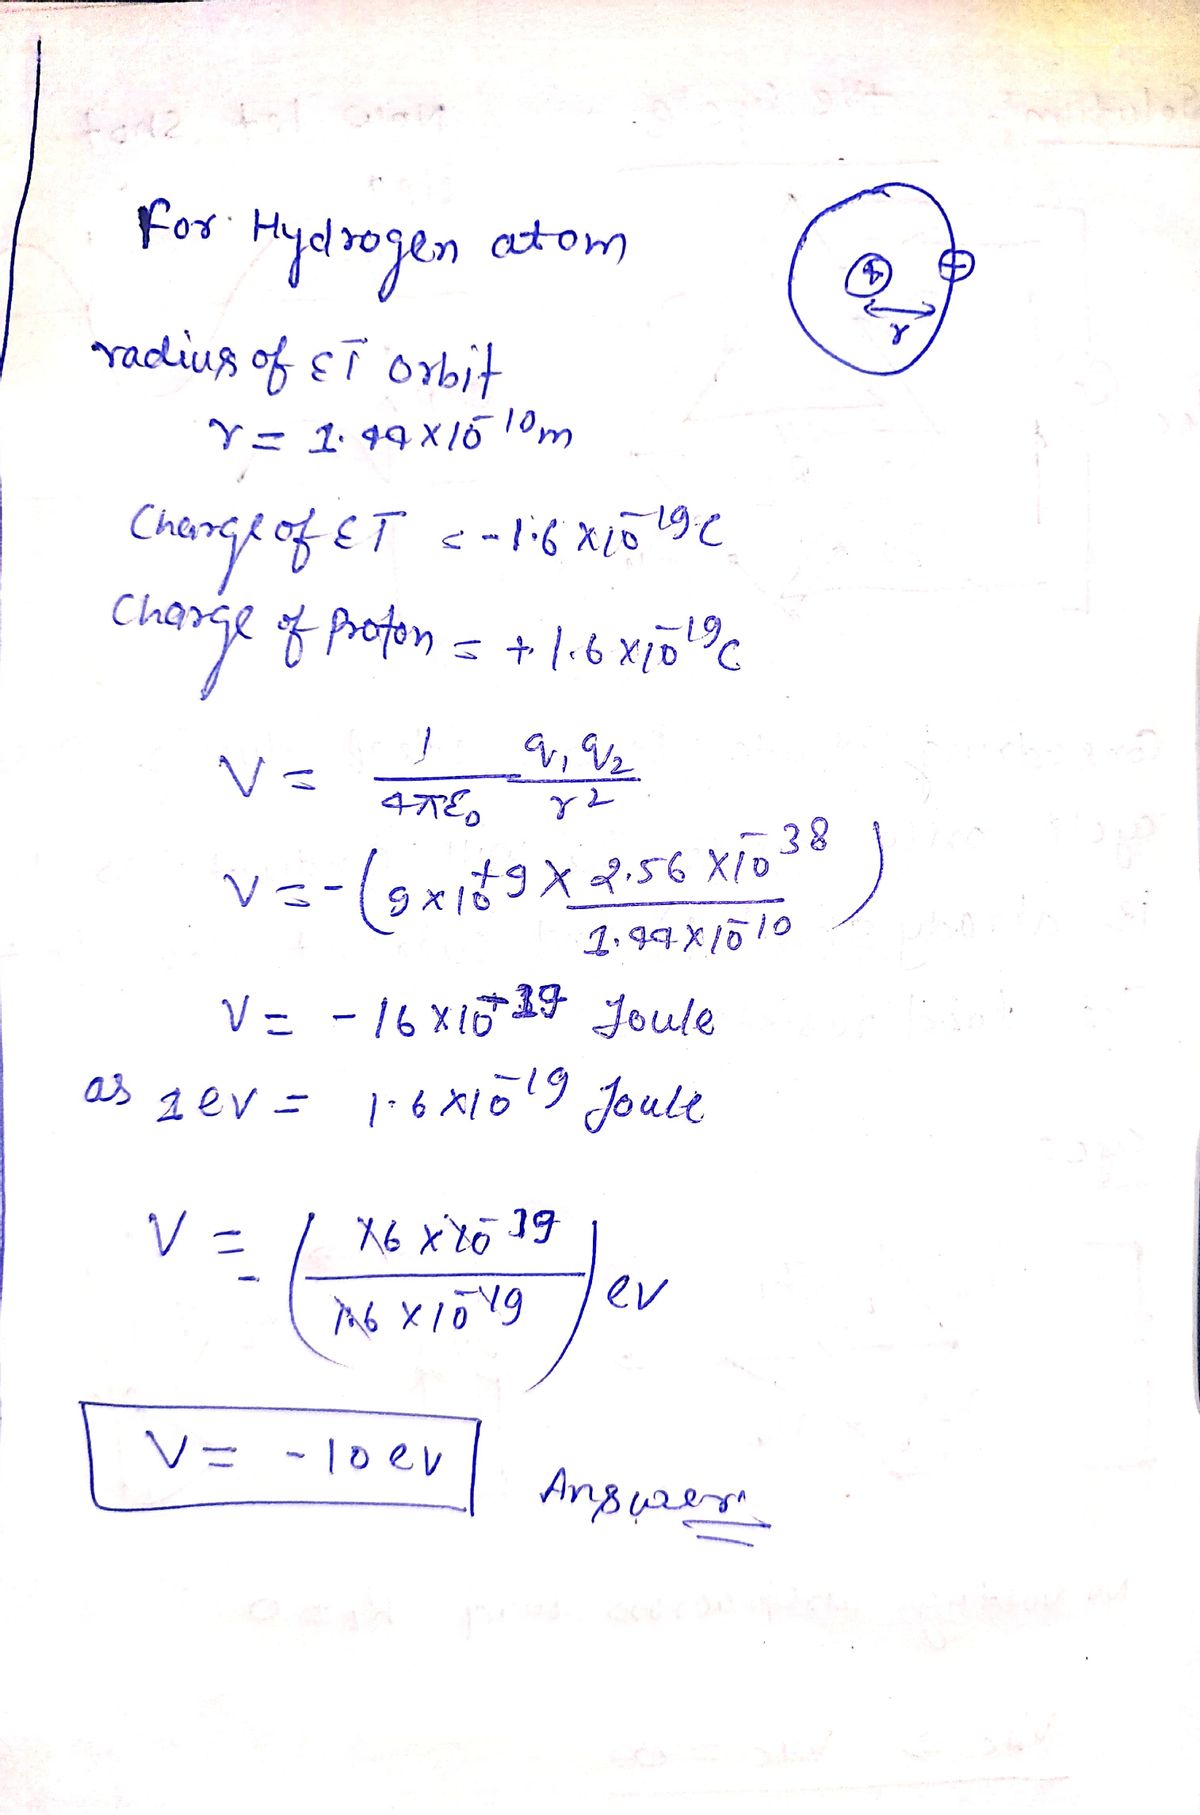 For Hydrogen atom
radius of ET orbit
r = 1.44 × 10⁻¹⁰ m
r
Charge of ET = -1.6 × 10⁻¹⁹ C
Charge of Proton = + 1.6 × 10⁻¹⁹ C
V = 1/4πε₀ q₁ q₂/r²
V = -(9 × 10⁺⁹ × 2.56 × 10⁻³⁸/1.44 × 10⁻¹⁰)
V = - 16 × 10 Joule
as 1 ev = 1.6 × 10⁻¹⁹ Joule
V = -(16 × 10⁻¹⁹/1.6 × 10⁻¹⁹) ev
V = -10 ev
Answer